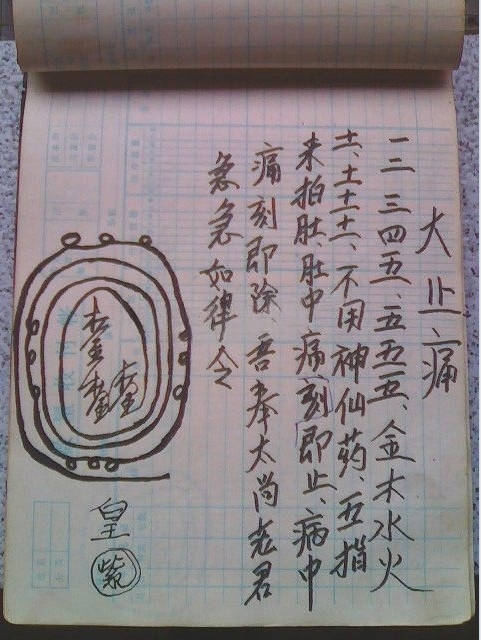 大止痛
一二三四五、五五五、金木水火
土、土土土、不用神仙药、五指
来拍肚、肚中痛刻即止、病中
痛刻即除、吾奉太尚老君
急急如律令
皇
紫